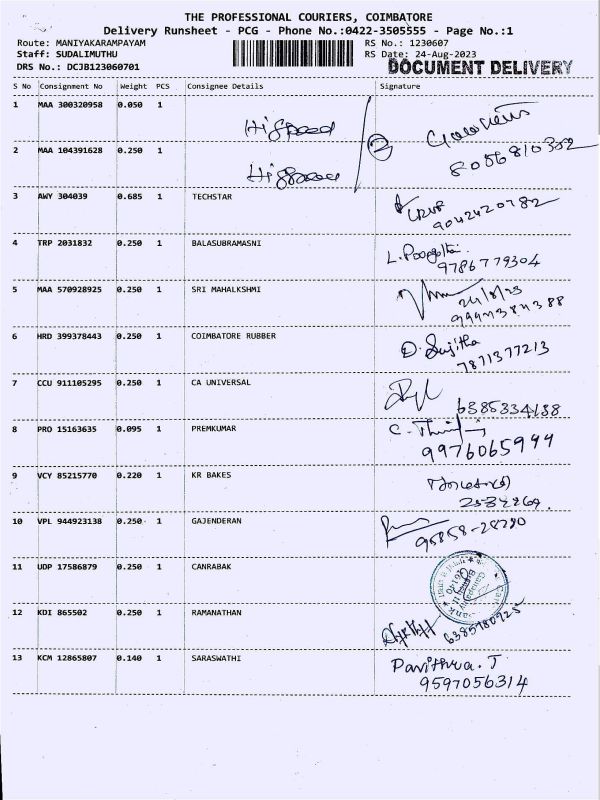 THE PROFESSIONAL COURIERS, COIMBATORE
Delivery Runsheet - PCG - Phone No.:0422-3505555 - Page No.:1
Route: MANIYAKARAMPAYAM RS No.: 1230607
Staff: SUDALIMUTHU RS Date: 24-Aug-2023
DRS No.: DCJB123060701 DOCUMENT DELIVERY
S No Consignment No Weight PCS Consignee Details Signature
1 MAA 300320958 0.050 1 Hispeed
8056810352
2 MAA 104391628 0.250 1 Hispeed 2
3 AWY 304039 0.685 1 TECHSTAR
9042420782
4 TRP 2031832 0.250 1 BALASUBRAMASNI
9786779304
5 MAA 570928925 0.250 1 SRI MAHALKSHMI 24/8/23
6 HRD 399378443 0.250 1 COIMBATORE RUBBER D. Sujitha
7871377213
7 CCU 911105295 0.250 1 CA UNIVERSAL
6385334138
8 PRO 15163635 0.095 1 PREMKUMAR
9976065999
9 VCY 85215770 0.220 1 KR BAKES
10 VPL 944923138 0.250 1 GAJENDERAN
95858-28780
11 UDP 17586879 0.250 1 CANRABAK
12 KDI 865502 0.250 1 RAMANATHAN
6385980925
13 KCM 12865807 0.140 1 SARASWATHI Pavithra. T
9597056314